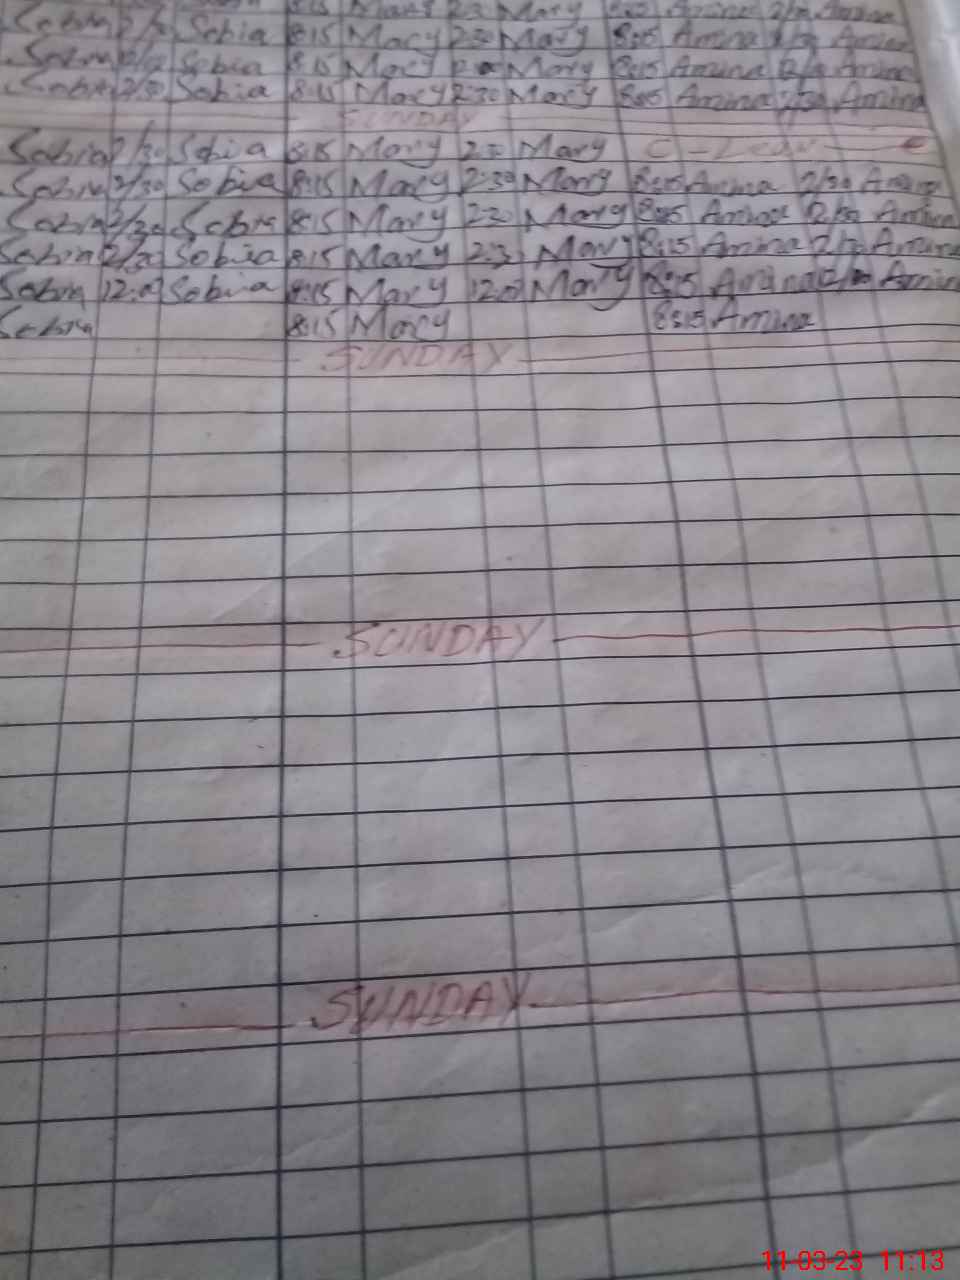 Sobia 8:15 Mary Mary 8:15 Amina
Sobia 8:15 Mary Mary 8:15 Amina Amina
Sobia 8:15 Mary 2:30 Mary 8:15 Amina 2/30 Amina
SUNDAY
Sobia 2/30 Sobia 8:15 Mary 2:30 Mary C-Leave
Sobia 2/30 Sobia 8:15 Mary 2:30 Mary 8:15 Amina 2/30 Amina
Sobia 2/30 Sobia 8:15 Mary 2:30 Mary 8:15 Amina 2/30 Amina
Sobia 2/30 Sobia 8:15 Mary 2:30 Mary 8:15 Amina Amina
Sobia 12:0 Sobia 8:15 Mary 12:0 Mary 8:15 Amina Amina
Sobia 8:15 Mary 8:15 Amina
SUNDAY
SUNDAY
SUNDAY
11-03-23 11:13